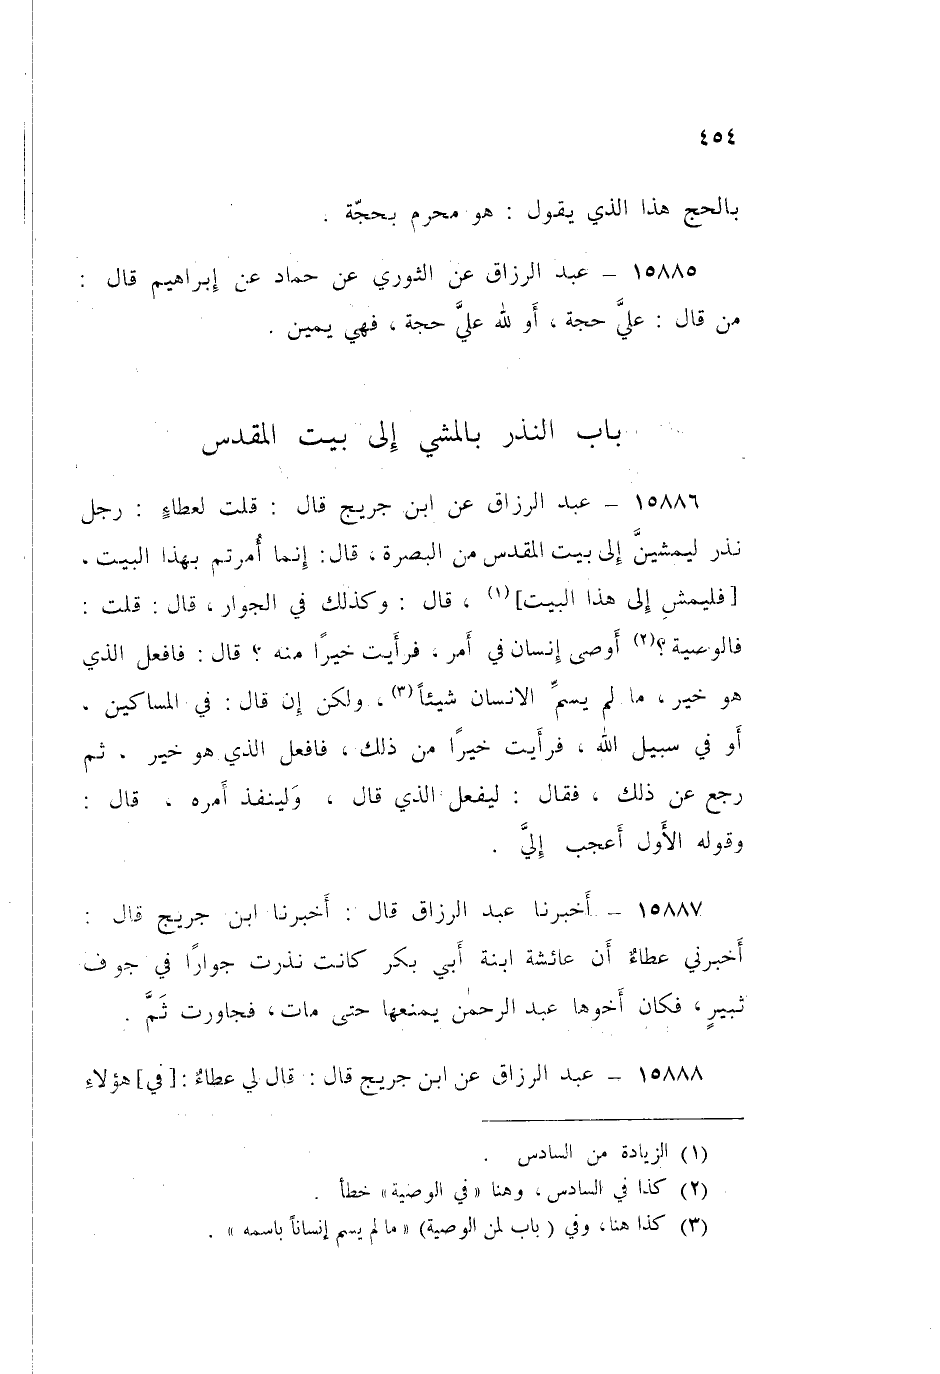 ٤٥٤
بالحج هذا الذي يقول : هو محرم بحجّة .
١٥٨٨٥ – عبد الرزاق عن الثوري عن حماد عن إبراهيم قال :
من قال : عليَّ حجة ، أو لله عليَّ حجة ، فهي يمين .
باب النذر بالمشي إلى بيت المقدس
١٥٨٨٦ – عبد الرزاق عن ابن جريج قال : قلت لعطاءٍ : رجل
نذر ليمشينَّ إلى بيت المقدس من البصرة ، قال : إنما أُمرتم بهذا البيت .
[فليمشِ إلى هذا البيت](١) ، قال : وكذلك في الجوار ، قال : قلت :
فالوصية ؟(٢) أوصى إنسان في أمر ، فرأيت خيرًا منه ؟ قال : فافعل الذي
هو خير ، ما لم يسمِّ الانسان شيئاً(٣) ، ولكن إن قال : في المساكين .
أو في سبيل الله ، فرأيت خيرًا من ذلك ، فافعل الذي هو خير . ثم
رجع عن ذلك ، فقال : ليفعل الذي قال ، وَلينفذ أمره ، قال :
وقوله الأول أعجب إليَّ .
١٥٨٨٧ – أخبرنا عبد الرزاق قال : أخبرنا ابن جريج قال :
أخبرني عطاءٌ أن عائشة ابنة أبي بكر كانت نذرت جوارًا في جوف
ثبيرٍ ، فكان أخوها عبد الرحمٰن يمنعها حتى مات ، فجاورت ثَمَّ .
١٥٨٨٨ – عبد الرزاق عن ابن جريج قال : قال لي عطاءٌ : [في] هؤلاءِ
(١) الزيادة من السادس .
(٢) كذا في السادس ، وهنا « في الوصية » خطأ .
(٣) كذا هنا ، وفي ( باب لمن الوصية ) « ما لم يسم إنساناً باسمه » .